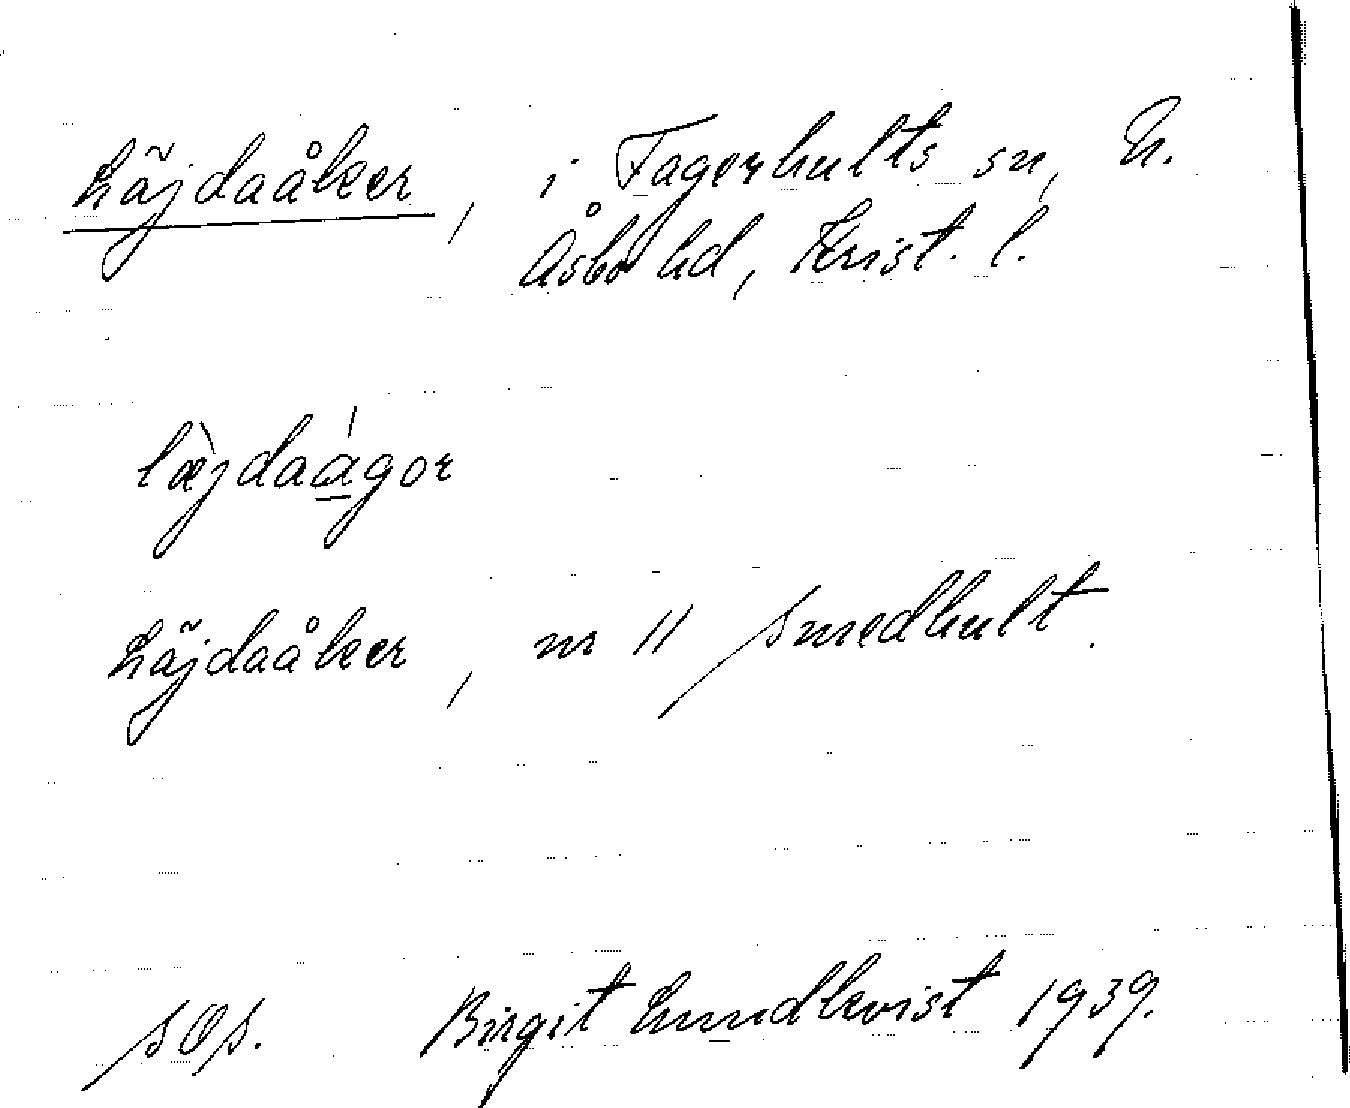 Läjdaåker, i Fagerhults sn, N.
Åsbo hd, Krist. l.
læ̀jdaá̲gor
Läjdaåker, nr 11 Smedhult.
Birgit Lundkvist 1939.